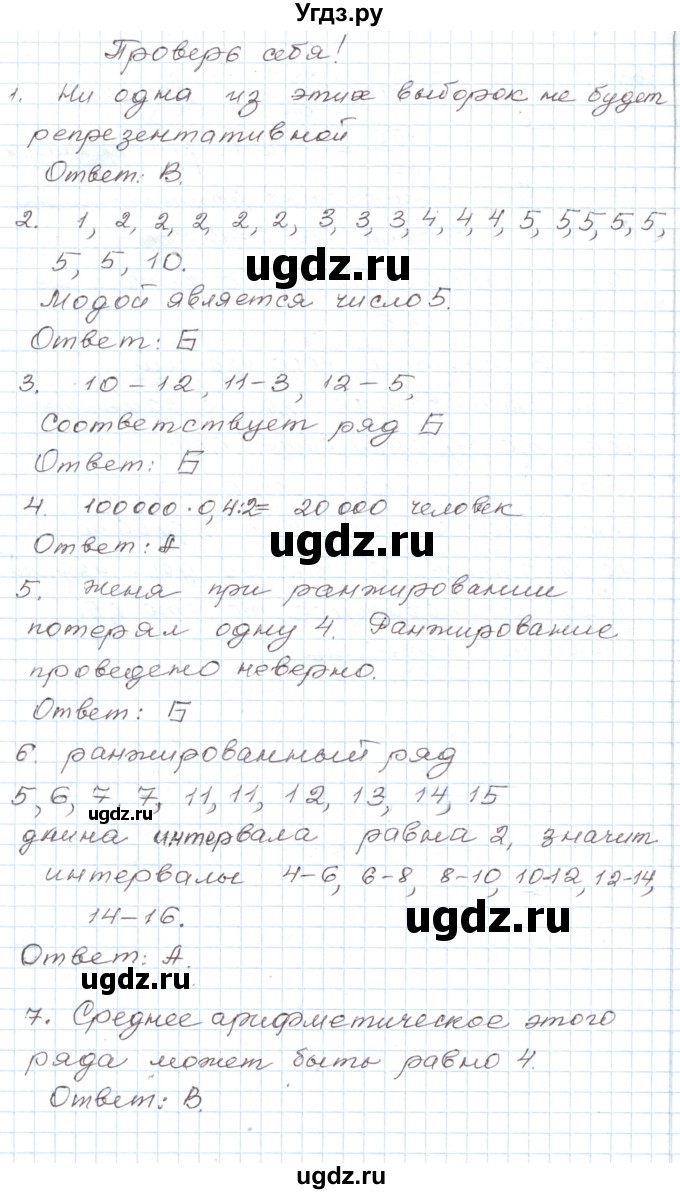 Угдз.ру
Проверь себя!
1. Ни одна из этих выборок не будет
репрезентативной
Ответ: В.
2. 1, 2, 2, 2, 2, 2, 3, 3, 3, 4, 4, 4, 5, 5, 5, 5, 5,
5, 5, 10.
ugdz.ru
Модой является число 5.
Ответ: Б
3. 10-12, 11-3, 12-5,
Соответствует ряд Б
Ответ: Б
4. 100000·0,4:2= 20 000 человек
Ответ: А
ugdz.ru
5. Женя при ранжировании
потерял одну 4. Ранжирование
проведено неверно.
Ответ: Б
6. ранжированный ряд
5, 6, 7, 7, 11, 11, 12, 13, 14, 15
ugdz.ru
длина интервала равна 2, значит
интервалы 4-6, 6-8, 8-10, 10-12, 12-14,
14-16.
ugdz.ru
Ответ: А.
ugdz.ru
7. Среднее арифметическое этого
ряда может быть равно 4.
Ответ: В.
ugdz.ru